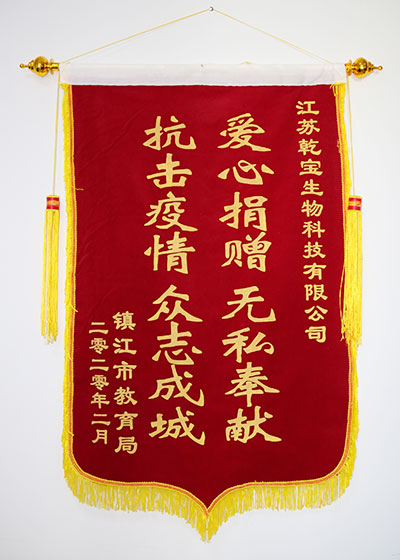 江苏乾宝生物科技有限公司
爱心捐赠 无私奉献
抗击疫情 众志成城
镇江市教育局
二零二零年二月